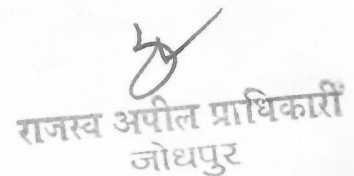 राजस्व अपील प्राधिकारीं
जोधपुर